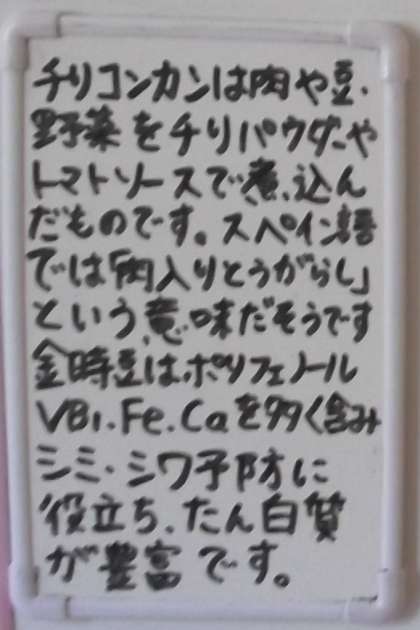 チリコンカンは肉や豆・
野菜をチリパウダーや
トマトソースで煮込ん
だものです。スペイン語
では「肉入りとうがらし」
という意味だそうです
金時豆はポリフェノール
VB1.Fe.Caを多く含み
シミ・シワ予防に
役立ち、たん白質
が豊富です。